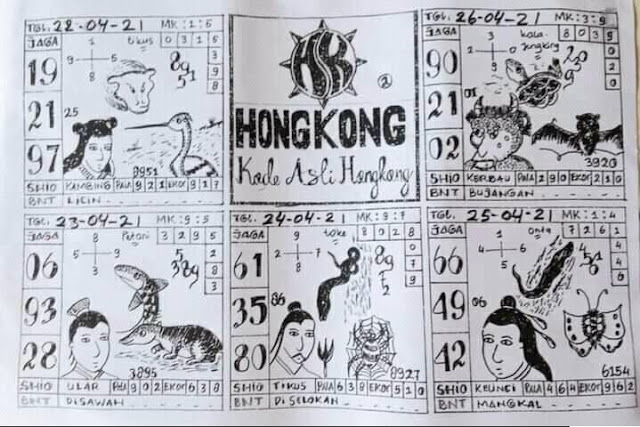 TGL. 22-04-21 MK: 1:5
JAGA
tikus
0 3 1 5
19
21
97
25
8951
SHIO KAMBING PALA 9 2 1 EKOR 9 1 7
BNT LICIN
HSK
2
HONGKONG
Kode Asli Hongkong
TGL. 26-04-21 MK: 3:9
JAGA
kala jengking
8 0 3 9
90
21
02
01
3920
SHIO KERBAU PALA 2 9 0 EKOR 2 1 0
BNT BUJANGAN
TGL. 23-04-21 MK: 9:5
JAGA
Petani
3 2 9 5
06
93
28
3895
SHIO ULAR PALA 9 0 2 EKOR 6 3 8
BNT DISAWAH
TGL. 24-04-21 MK: 9:7
JAGA
toke
8 0 2 8
61
35
80
86
8927
SHIO TIKUS PALA 6 3 8 EKOR 5 1 0
BNT DISELOKAN
TGL. 25-04-21 MK: 1:4
JAGA
onta
7 2 6 1
66
49
42
06
6154
SHIO KELINCI PALA 4 6 4 EKOR 9 6 2
BNT MANGKAL